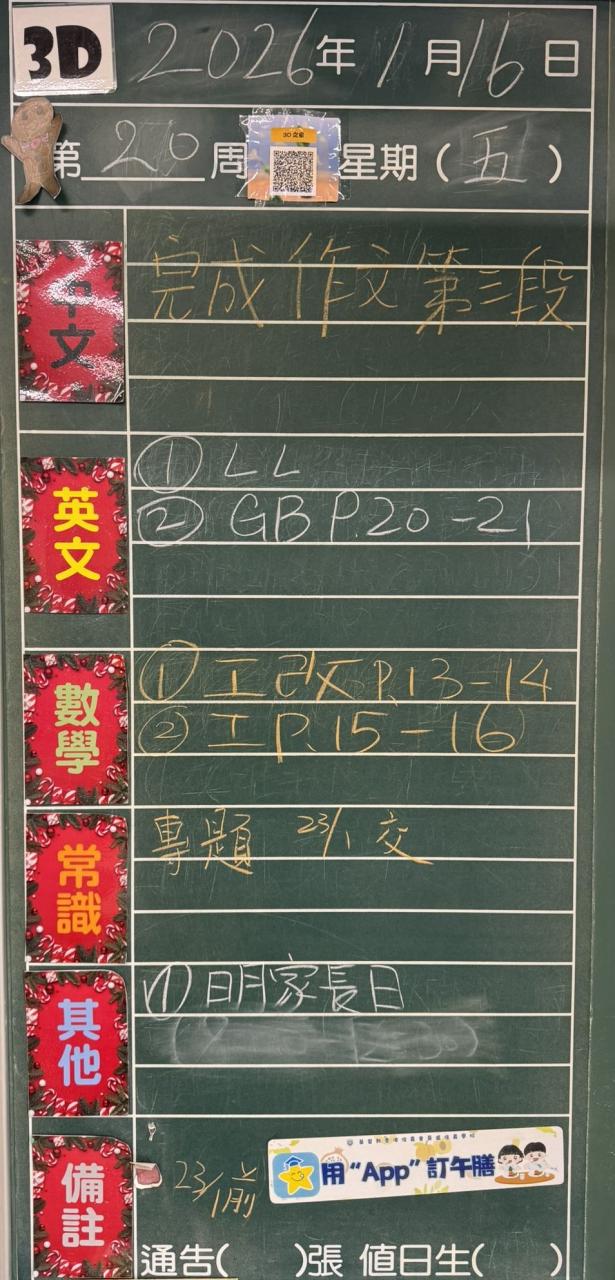 3D 2026年1月16日
第20周 3D 星期(五)
中文 完成作文第三段
英文 ① LL
② GB P.20-21
數學 ① 工改 P.13-14
② 工 P.15-16
常識 專題 23/1 交
其他 ① 明家長日
備註 23/1前 用“App”訂午膳
通告( )張 值日生( )